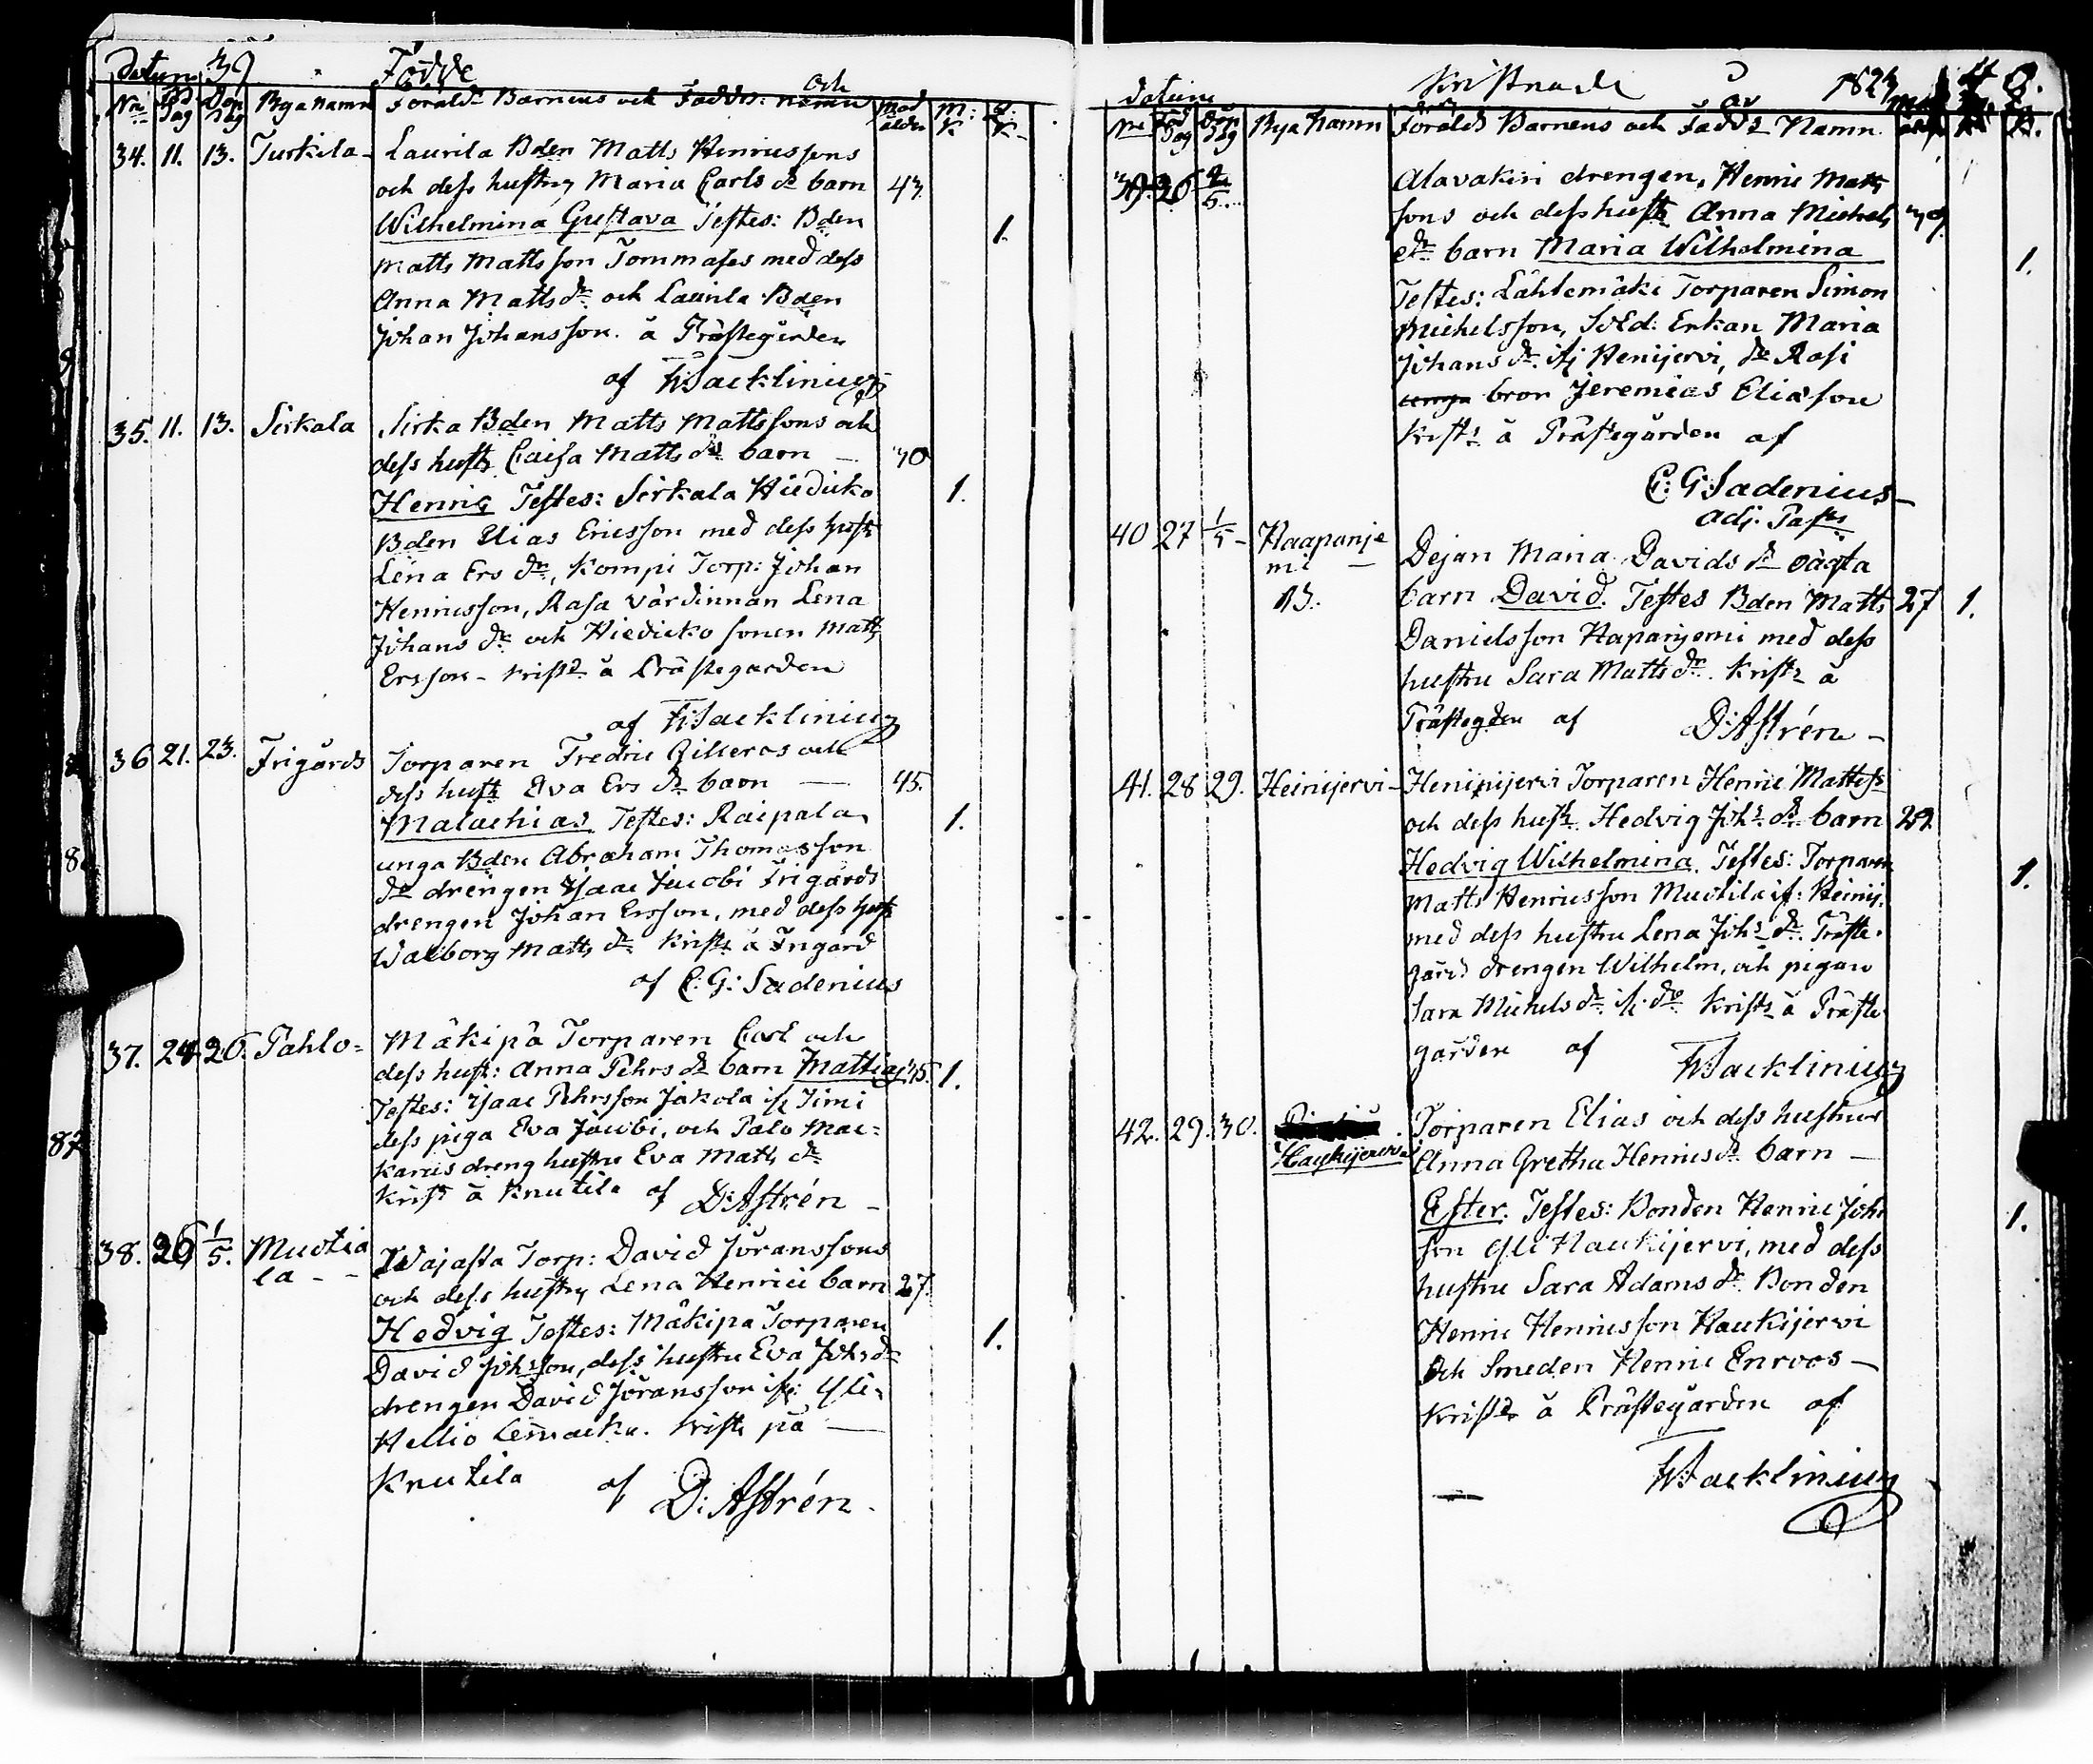 Datum Födde och
No Föd dag Döp dag Bya namn Förälds Barnens och Fadds: namn Mod ålder M: K Q: K
34. 11. 13. Turkila - Laurila Bden Matts Henricssons
och dess hustru Maria Carls dr barn 43
Wilhelmina Gustava Testes: Bden 1.
Matts Mattsson Tommases med dess
Anna Matts dr och Laurila Bden
Johan Johansson. å Prästegården
af Wacklinius
35. 11. 13. Sirkala Sirka Bden Matts Mattssons och
dess hustr Caisa Matts dr barn — 30
Henric Testes: Sirkala Hiedicko 1.
Bden Elias Ericsson med dess hustr
Lena Ers dr, Kompi Torp: Johan
Henricsson, Rasa värdinnan Lena
Johans dr och Hiedicko sonen Matts
Ersson - Krist å Prästegården
af Wacklinius
36 21. 23. Frigårds Torparen Fredric Gilleros och
dess hustr Eva Ers dr barn — 45.
Malachias Testes: Raipala 1.
unga Bden Abraham Thomasson
Do drengen Isaac Jacobi Frigårds
drengen Johan Ersson, med dess hustr
Walborg Matts dr Krist å Frigård
af C. G: Sadenius
37. 24 26. Pahlo= Mäkipä Torparen Carl och
dess hust: Anna Pehrs dr barn Mattias 35. 1.
Testes: Isaac Pehrsson Jakola ifr Jimi
dess piga Eva Jacobi, och Palo Mac=
karis dreng hustru Eva Matts dr
Krist å Knutila af D: Astrén -
38. 26 1/5. Muotia
la - - Wajasta Torp: David Jöranssons
och dess hustru Lena Henrici barn 27.
Hedvig Testes: Mäkipä Torparen 1.
David Johsson, dess hustru Eva Johs dr
drengen David Jöransson ifr: Yli=
Hellio Krist på —
Knutila af D: Astrén.
Datum Kristnade 1824
No Föd dag Döp dag Bya Namn Förälds Barnens och Fadds Namn.
39. 26 2/5. Alavakiri drengen, Henric Matts
sons och dess hustr Anna Michels 39
dr barn Maria Wilhelmina 1.
Testes: Lähtemäki Torparen Simon
Michelsson, Sold: Enkan Maria
Johans dr ifr Henijervi, do Rasi
bror Jeremias Eliasson
Krist å Prästegården af
C: G: Sadenius -
adj. Past:
40 27 1/5 - Haapanje
mi — Dejan Maria Davids dr oägta
barn David. Testes Bden Matts 27 1.
Danielsson Hapanjemi med dess
hustru Sara Matts dr. Krist å
Prästegden af D: Astrén -
41. 28 29. Heinijervi - Heninijervi Torparen Henric Mattss
och dess hust Hedvig Johs dr barn 29
Hedvig Wilhelmina. Testes: Torparen 1.
Matts Henricsson Muotila if: Heinij.
med dess hustru Lena Johs dr. Präste.
gårds drengen Wilhelm, och pigan
Sara Michels dr. if. do Krist å Präste
gården af Wacklinius
42. 29. 30. Haukijervi Torparen Elias och dess hustru
Anna Gretha Henrics dr barn —
Ester. Testes: Bonden Henric Joh 1.
son Yli Haukijervi, med dess
hustru Sara Adams dr Bonden
Henric Henricsson Haukijervi
Och Smeden Henric Enroos —
Krist å Prästegården af
Wacklinius